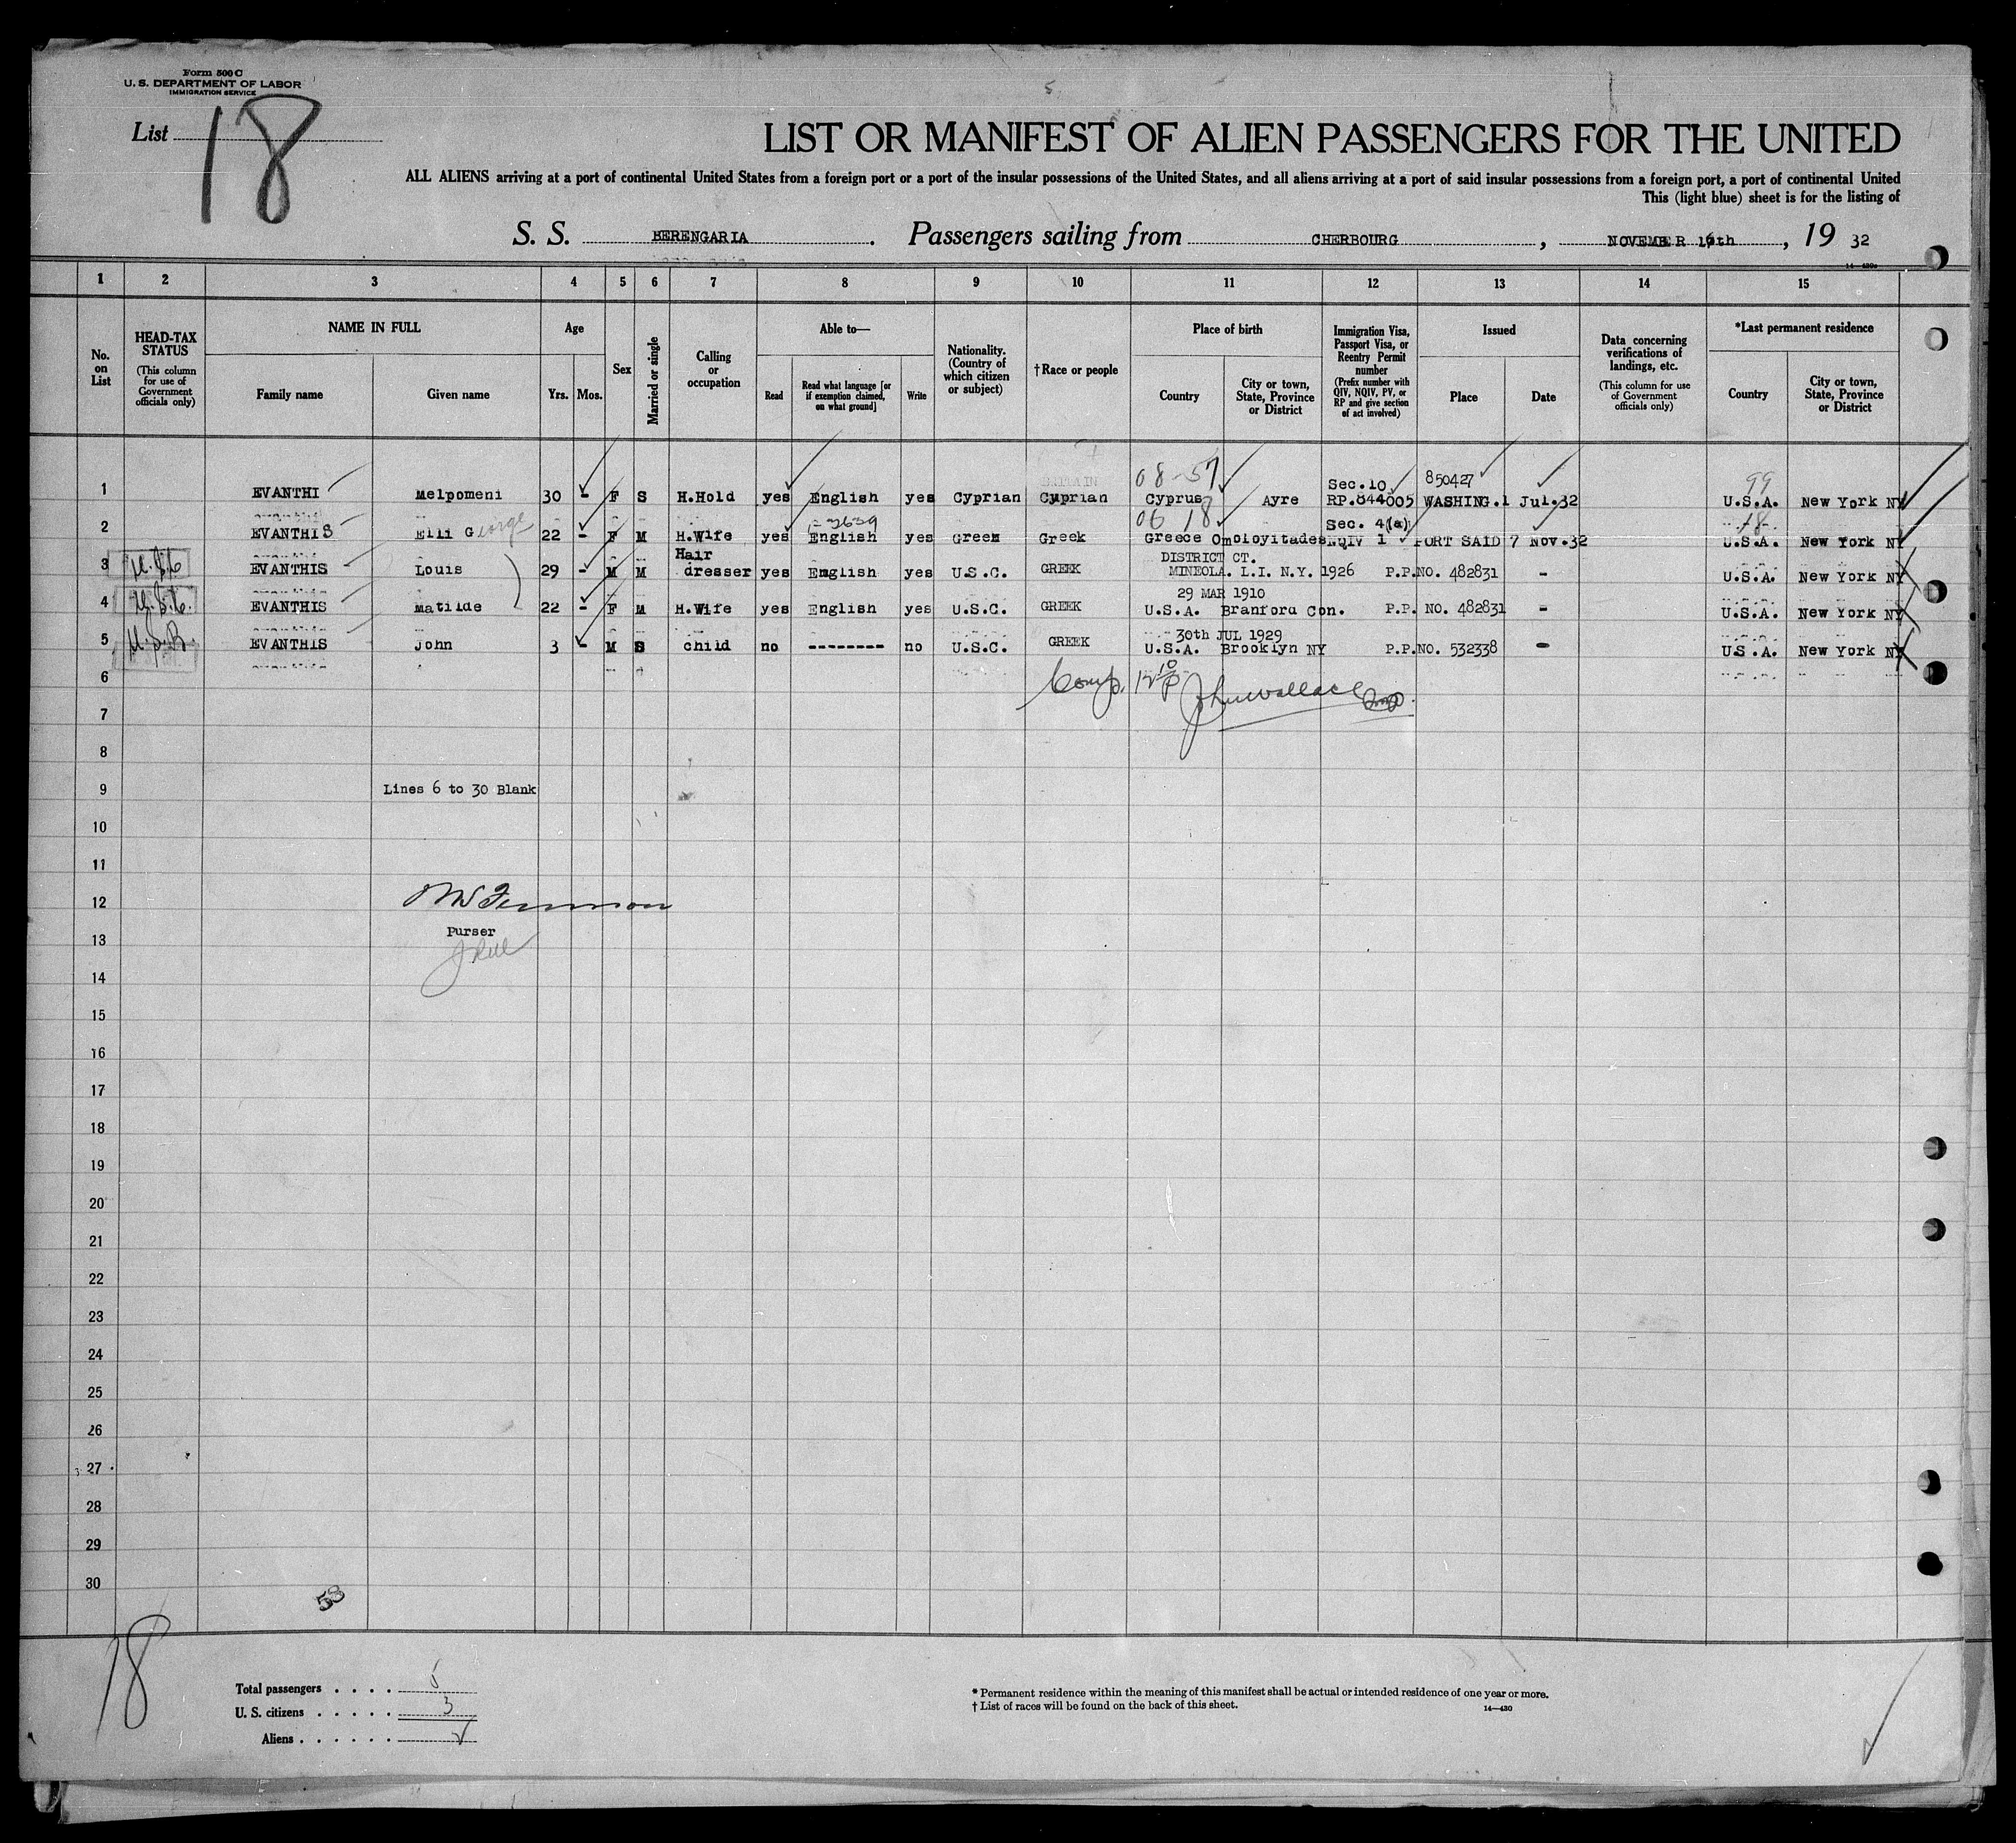 Form 500 C
U. S. DEPARTMENT OF LABOR
IMMIGRATION SERVICE
List 18
LIST OR MANIFEST OF ALIEN PASSENGERS FOR THE UNITED
ALL ALIENS arriving at a port of continental United States from a foreign port or a port of the insular possessions of the United States, and all aliens arriving at a port of said insular possessions from a foreign port, a port of continental United
This (light blue) sheet is for the listing of
S. S. BERENGARIA. Passengers sailing from CHERBOURG, NOVEMBER 1 th, 19 32
1 2 3 4 5 6 7 8 9 10 11 12 13 14 15
No. on List
HEAD-TAX STATUS
(This column for use of Government officials only)
NAME IN FULL
Family name
Given name
Age
Yrs. Mos.
Sex
Married or single
Calling or occupation
Able to—
Read
Read what language [or if exemption claimed, on what ground]
Write
Nationality. (Country of which citizen or subject)
† Race or people
Place of birth
Country
City or town, State, Province or District
Immigration Visa, Passport Visa, or Reentry Permit number
(Prefix number with QIV, NQIV, PV, or RP and give section of act involved)
Issued
Place
Date
Data concerning verifications of landings, etc.
(This column for use of Government officials only)
*Last permanent residence
Country
City or town, State, Province or District
08-57 Sec.10 850427 99
1 EVANTHI Melpomeni 30 - F S H.Hold yes English yes Cyprian Cyprian Cyprus Ayre RP.844005 WASHING. 1 Jul.32 U.S.A. New York NY
06 18 Sec. 4(a)
2 EVANTHIS Elli George 22 - F M H.Wife yes English yes Greek Greek Greece Omoloyitades NQIV 1 PORT SAID 7 Nov.32 U.S.A. New York NY
Hair DISTRICT CT.
3 EVANTHIS Louis 29 - M M dresser yes English yes U.S.C. GREEK MINEOLA. L.I. N.Y. 1926 P.P.NO. 482831 - U.S.A. New York NY
29 MAR 1910
4 EVANTHIS Matilde 22 - F M H.Wife yes English yes U.S.C. GREEK U.S.A. Branford Con. P.P. NO. 482831 - U.S.A. New York NY
30th JUL 1929
5 EVANTHIS John 3 - M S child no -------- no U.S.C. GREEK U.S.A. Brooklyn NY P.P.NO. 532338 - U.S.A. New York NY
6 Comp. John Wallace
7
8
9 Lines 6 to 30 Blank
10
11
12
Purser
13
14
15
16
17
18
19
20
21
22
23
24
25
26
27
28
29
30
53
18
Total passengers . . . . 5
U. S. citizens . . . . . 3
Aliens . . . . . . 2
* Permanent residence within the meaning of this manifest shall be actual or intended residence of one year or more.
† List of races will be found on the back of this sheet.
14—430